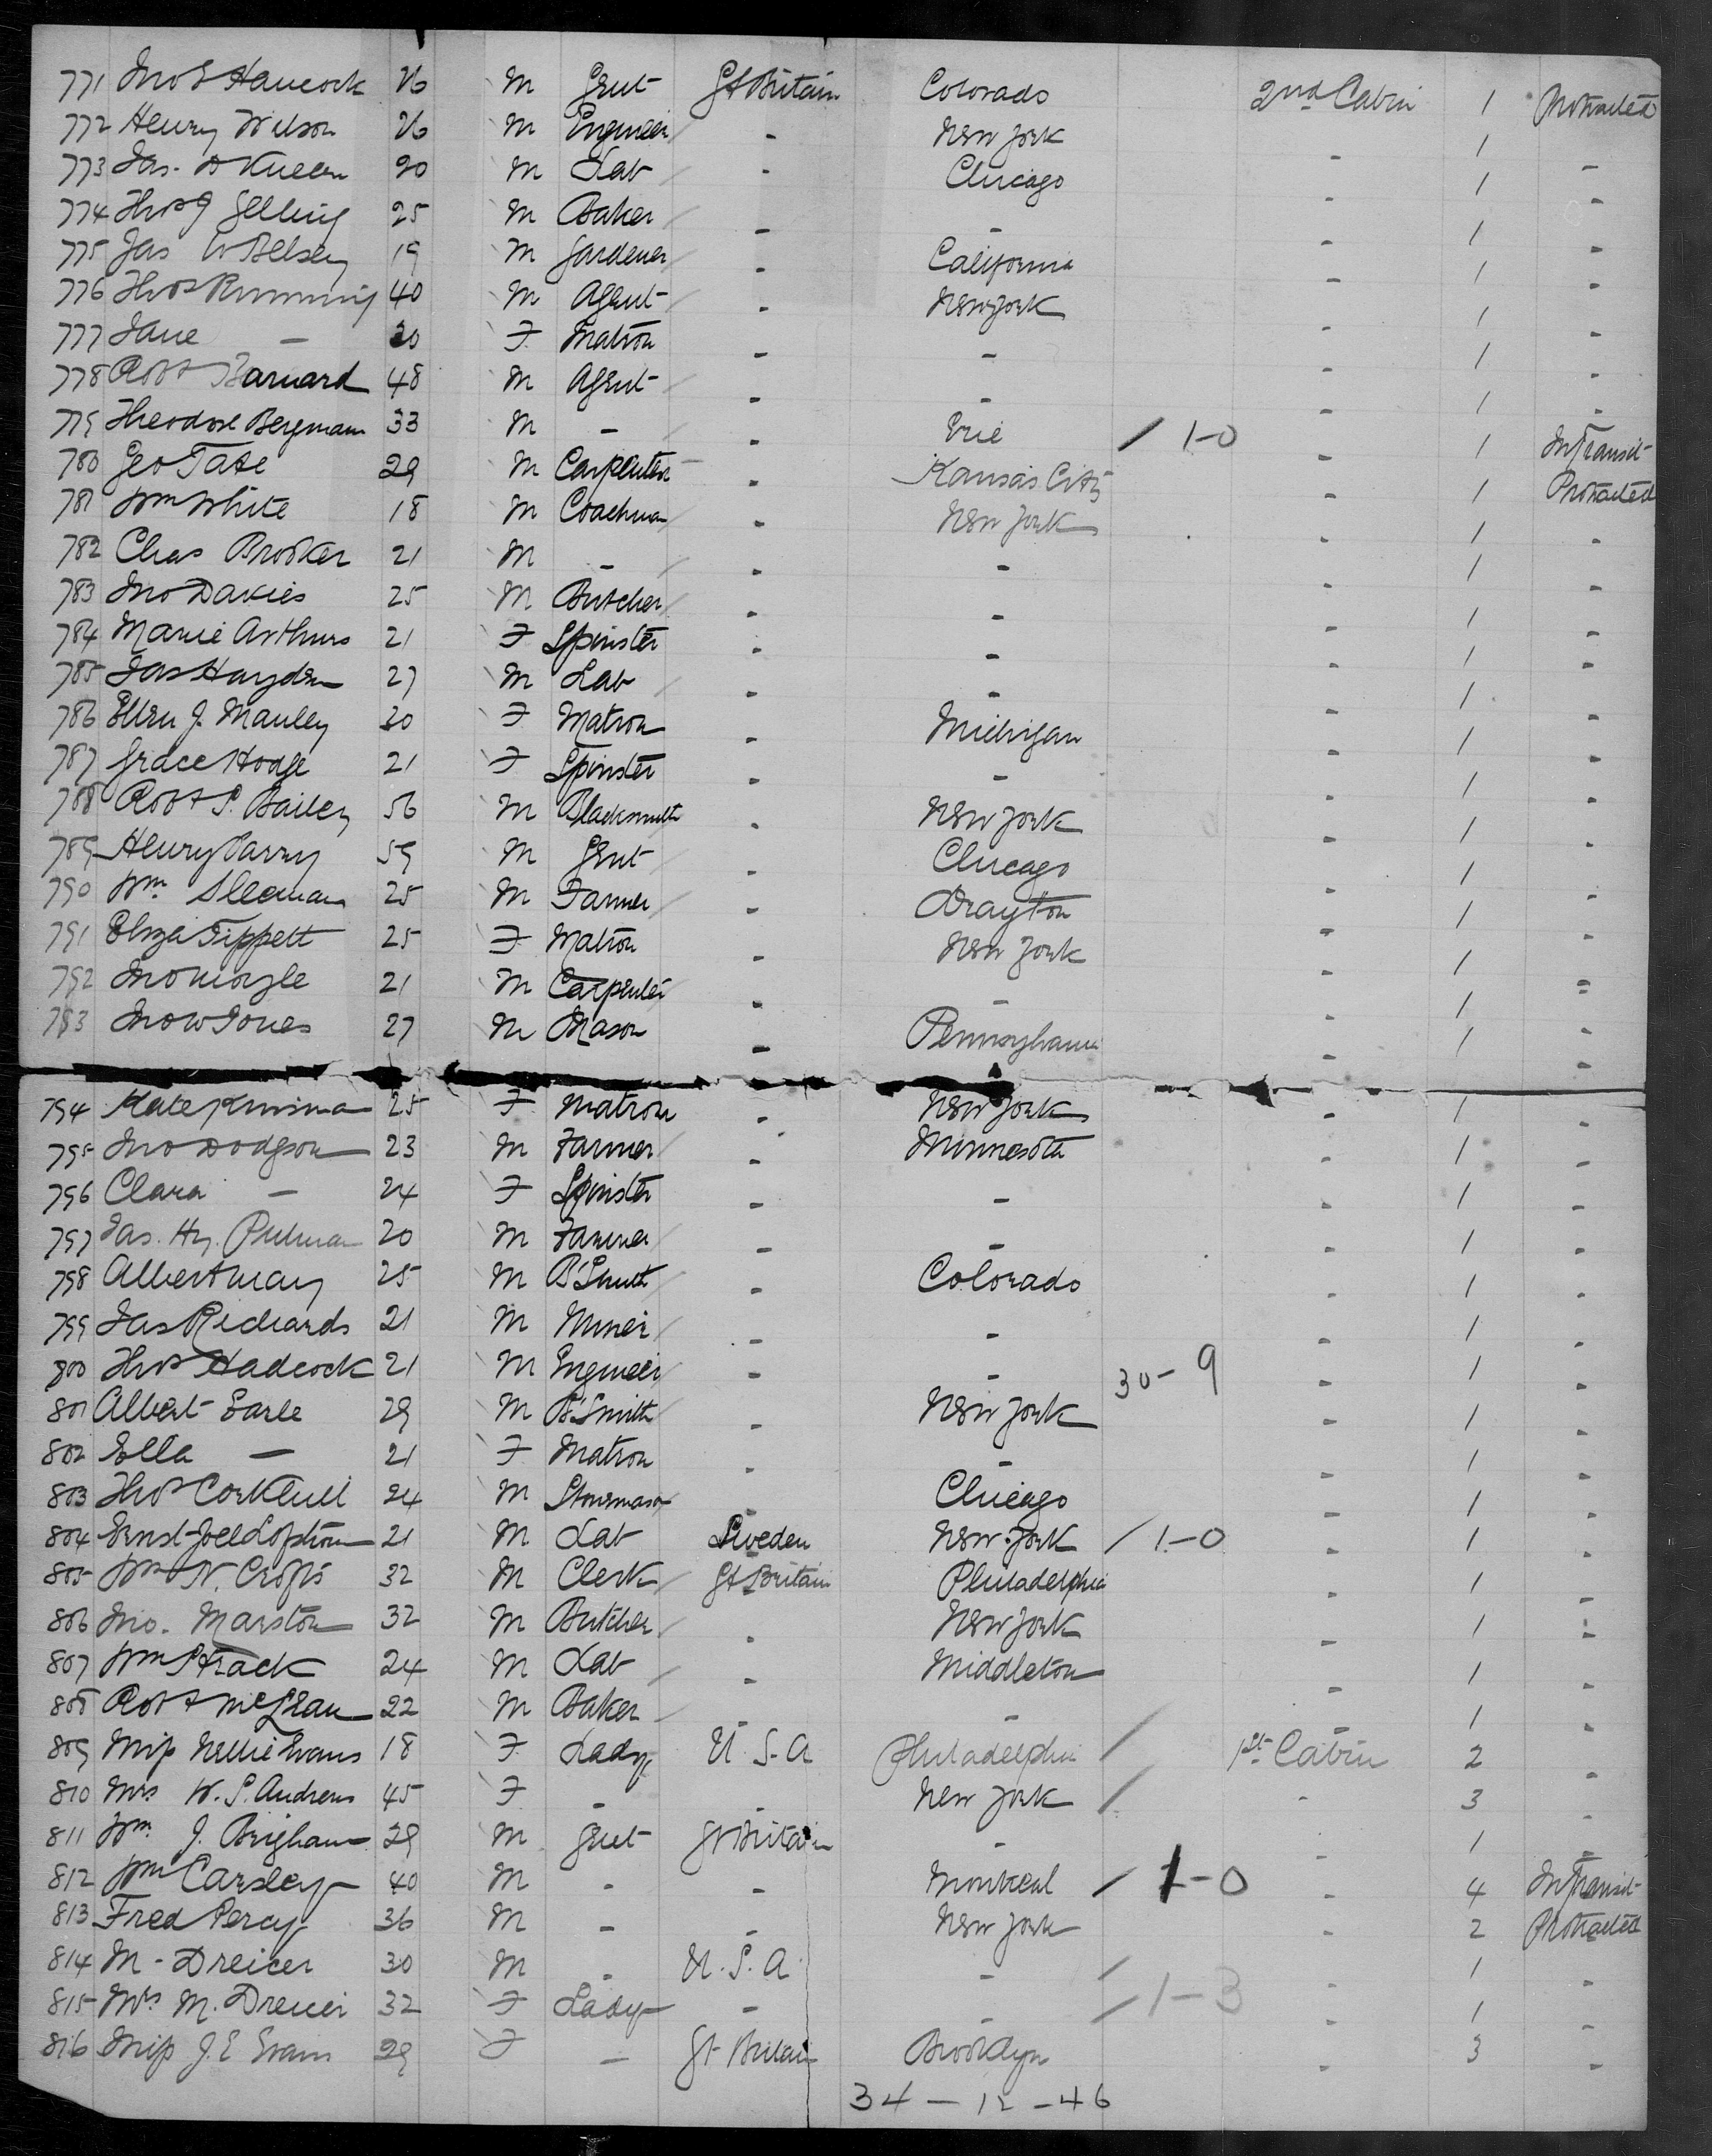 771 Jno S Hancock 26 M Gent Gt Britain Colorado 2nd Cabin 1 Protracted
772 Henry Wilson 26 M Engineer - New York - 1 -
773 Jas. D Kneen 20 M Lab - Chicago - 1 -
774 Thos J Gelling 25 M Baker - - - 1 -
775 Jas W Belsey 19 M Gardener - California - 1 -
776 Thos Rimming 40 M Agent - New York - 1 -
777 Jane - 30 F Matron - - - 1 -
778 Robt Barnard 48 M Agent - - - 1 -
779 Theodore Bergmann 33 M - - Erie / 1-0 - 1 InTransit
780 Geo Tate 29 M Carpenter - Kansas City - 1 Protracted
781 Wm White 18 M Coachman - New York - 1 -
782 Chas Brooker 21 M - - - - 1 -
783 Jno Davies 25 M Butcher - - - 1 -
784 Marie Arthurs 21 F Spinster - - - 1 -
785 Jas Hayden 27 M Lab - - - 1 -
786 Ellen J. Manley 30 F Matron - Michigan - 1 -
787 Grace Hodge 21 F Spinster - - - 1 -
788 Robt S. Bailey 56 M Blacksmith - New York - 1 -
789 Henry Parry 59 M Gent - Chicago - 1 -
790 Wm Sleeman 25 M Farmer - Drayton - 1 -
791 Eliza Tippett 25 F Matron - New York - 1 -
792 Jno 21 M Carpenter - - - 1 -
793 Jno W Jones 27 M Mason - Pennsylvania - 1 -
794 Kate 25 F Matron - New York - 1 -
795 Jno Dodgson 23 M Farmer - Minnesota - 1 -
796 Clara - 24 F Spinster - - - 1 -
797 Jas. Hy. Pulman 20 M Farmer - - - 1 -
798 Albert May 25 M B'Smith - Colorado - 1 -
799 Jas Richards 21 M Miner - - - 1 -
800 Thos Hadcock 21 M Engineer - - 30-9 - 1 -
801 Albert Earle 29 M B'Smith - New York - 1 -
802 Ella - 21 F Matron - - - 1 -
803 Thos Corkhill 24 M Stonemason - Chicago - 1 -
804 Ernst Joel Lofstrom 21 M Lab Sweden New York / 1-0 - 1 -
805 Wm N. Crofts 32 M Clerk Gt Britain Philadelphia - 1 -
806 Jno. Marston 32 M Butcher - New York - 1 -
807 Wm Strack 24 M Lab - Middleton - 1 -
808 Robt McLean 22 M Baker - - - 1 -
809 Miss Nellie Evans 18 F Lady U.S.A Philadelphia / 1st Cabin 2 -
810 Mrs W. S. Andrews 45 F - - New York / - 3 -
811 Wm J. Brigham 29 M Gent Gt Britain - - 1 -
812 Wm Carsley 40 M - - Montreal / 1-0 - 4 InTransit
813 Fred Percy 36 M - - New York - 2 Protracted
814 M. Dreicer 30 M - U.S.A. - / - 1 -
815 Mrs M. Dreicer 32 F Lady - - / 1-3 - 1 -
816 Miss J. E Evans 29 F - Gt Britain Brooklyn - 3 -
34 - 12 - 46